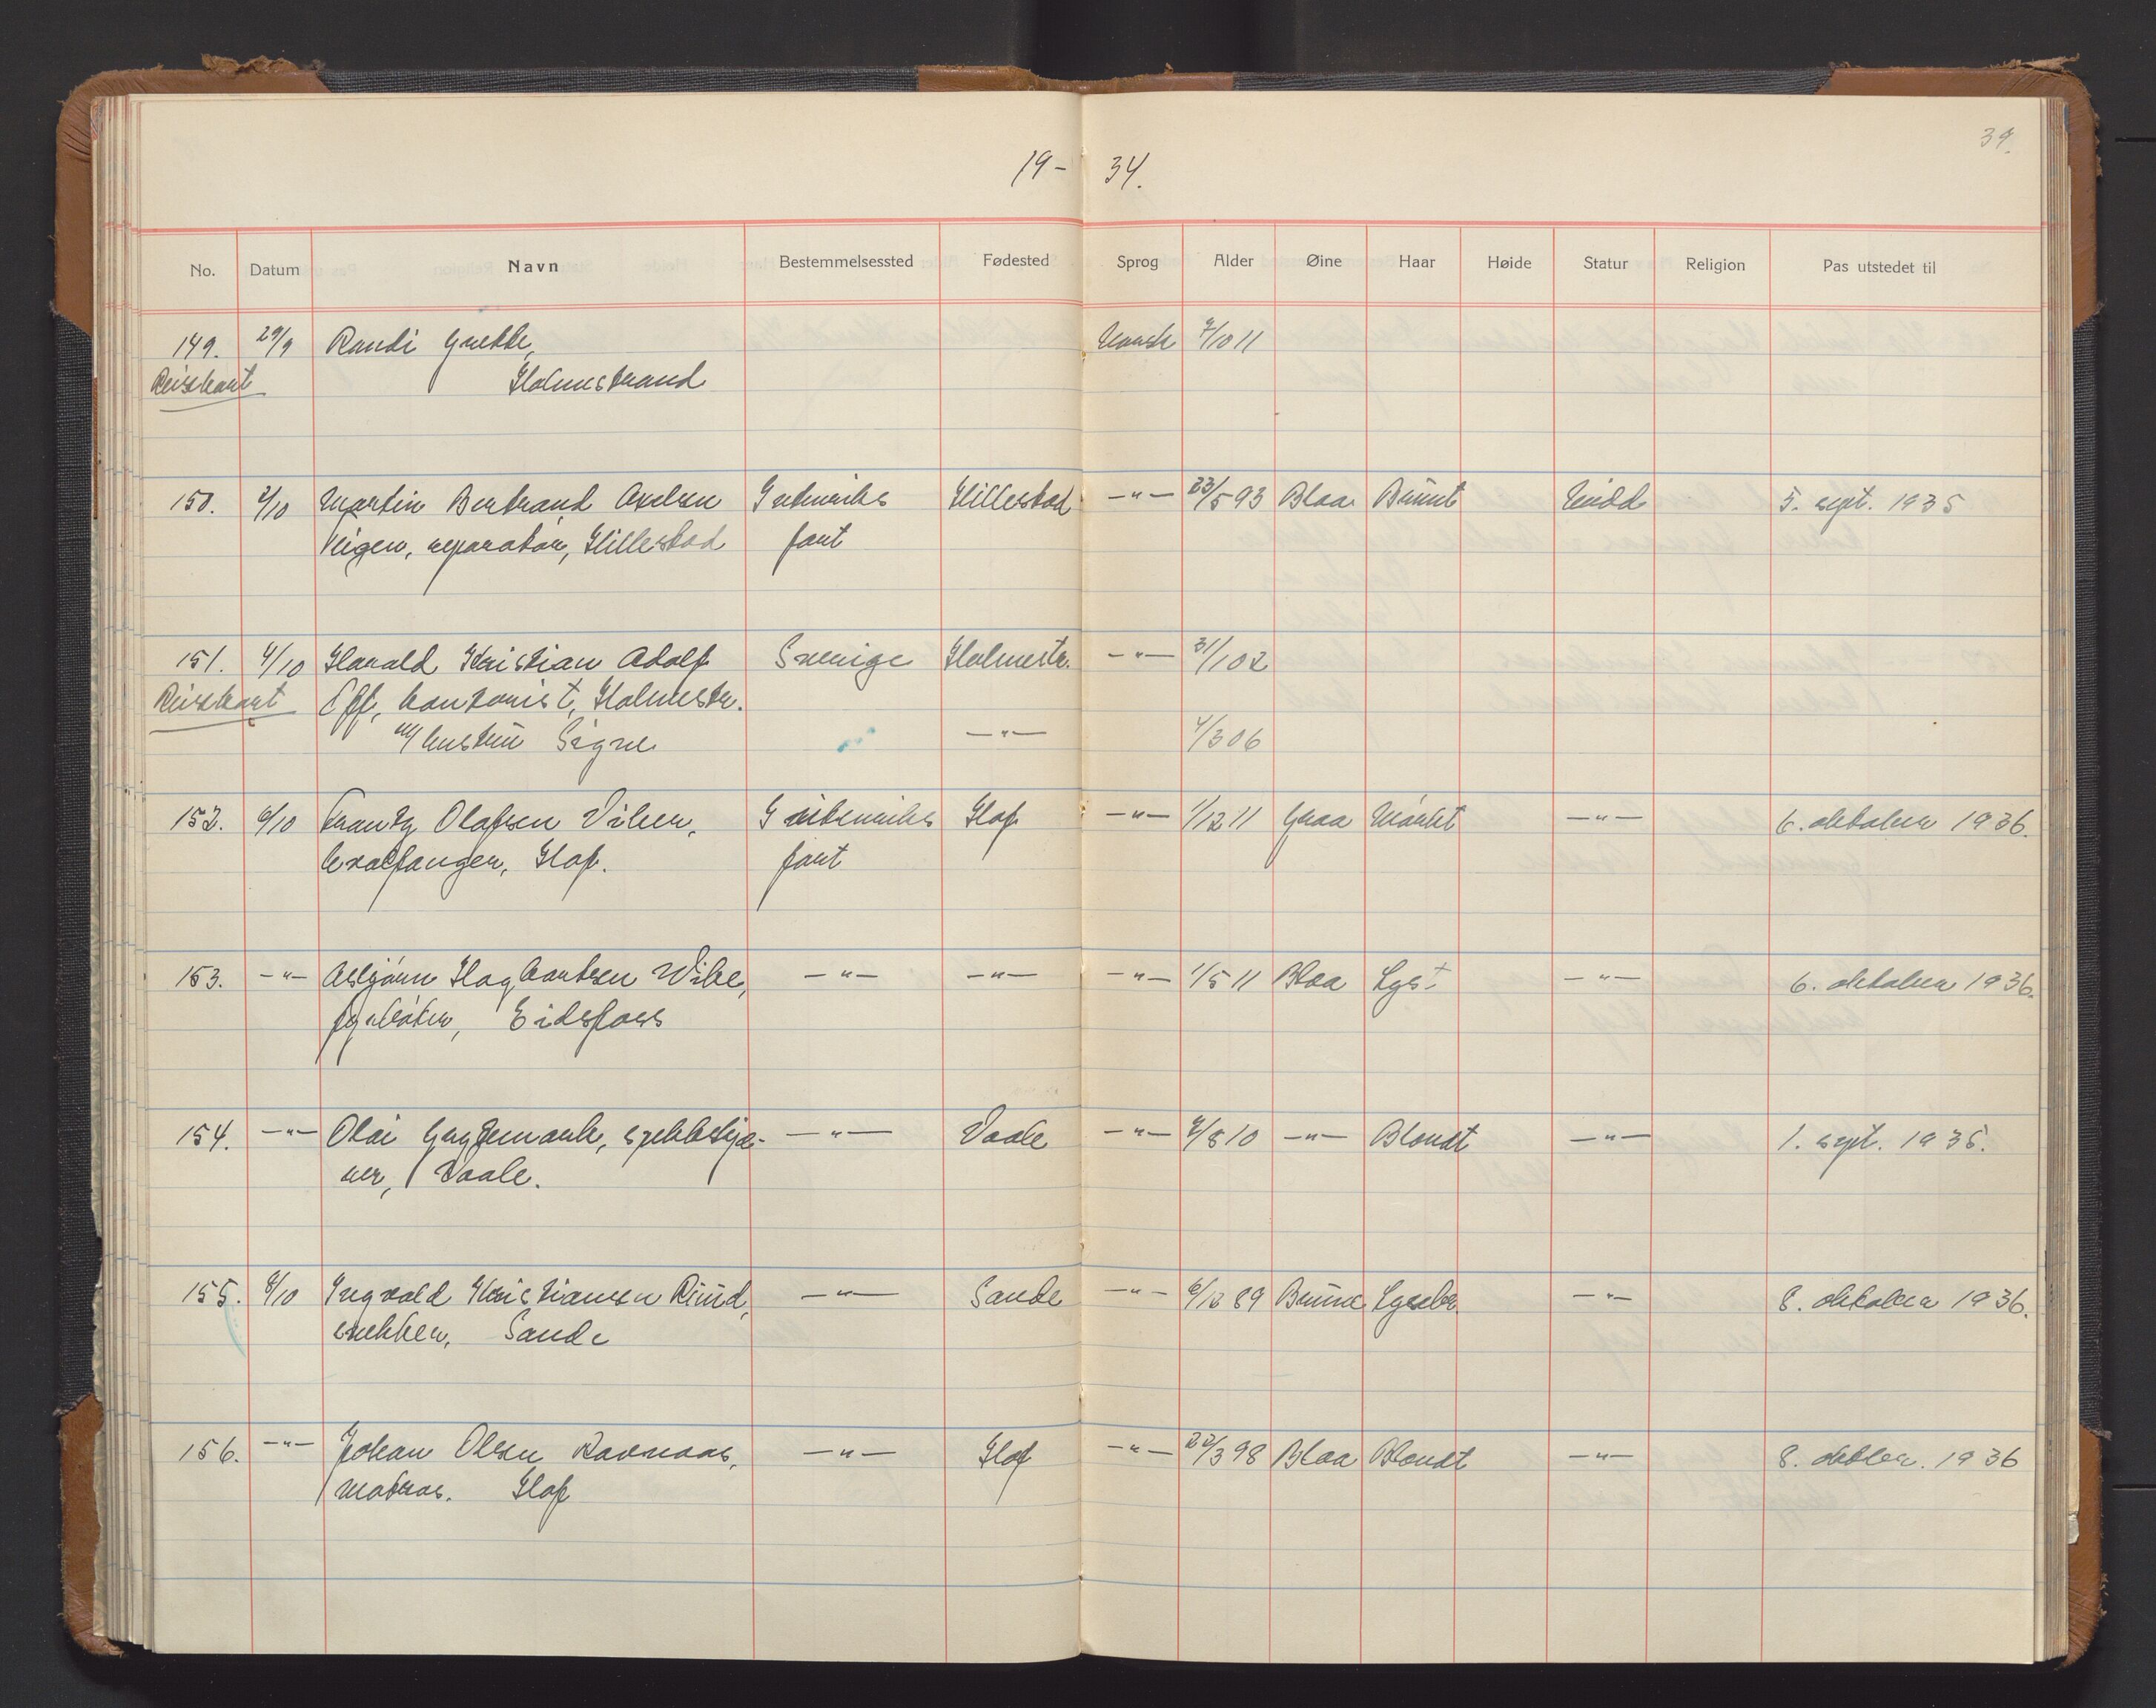 34.
19-34.
No. Datum Navn Bestemmelsessted Fødested Sprog Alder Øine Haar Høide Statur Religion Pas utstedet til
149. 29/9 Randi Norsk 7/10 11
Reisekort Holmestrand
150. 2/10 Martin Bertrand Axelsen Hillestad -"- 23/5 93 Blaa Brunt Midd 5. sept. 1935
reparatør, Hillestad fart
151. 4/10 Harald Kristian Adolf Sverige Holmestr. -"- 31/1 02
Reisekort Eff, kontorist, Holmestr.
m/ hustru Signe -"- 4/3 06
152. 6/10 Frantz Olafsen Viker, Utenriks Hof -"- 1/12 11 Graa Mørkt -"- 6. oktober 1936.
hvalfanger, Hof. fart
153. -"- Asbjørn Hagbartsen Wike, -"- -"- -"- 1/5 11 Blaa Lyst -"- 6. oktober 1936.
fyrbøter, Eidsfoss
154. -"- Olai spekkskjæ- -"- Vaale -"- 4/8 10 -"- Blondt -"- 1. sept. 1935.
rer, Vaale.
155. 8/10 Ingvald Kristiansen Ruud, -"- Sande -"- 6/12 89 Brune -"- 8. oktober 1936.
snekker, Sande
156. -"- Johan Olsen Ravnaas, -"- Hof -"- 22/3 98 Blaa Blondt -"- 8. oktber. 1936
matros. Hof